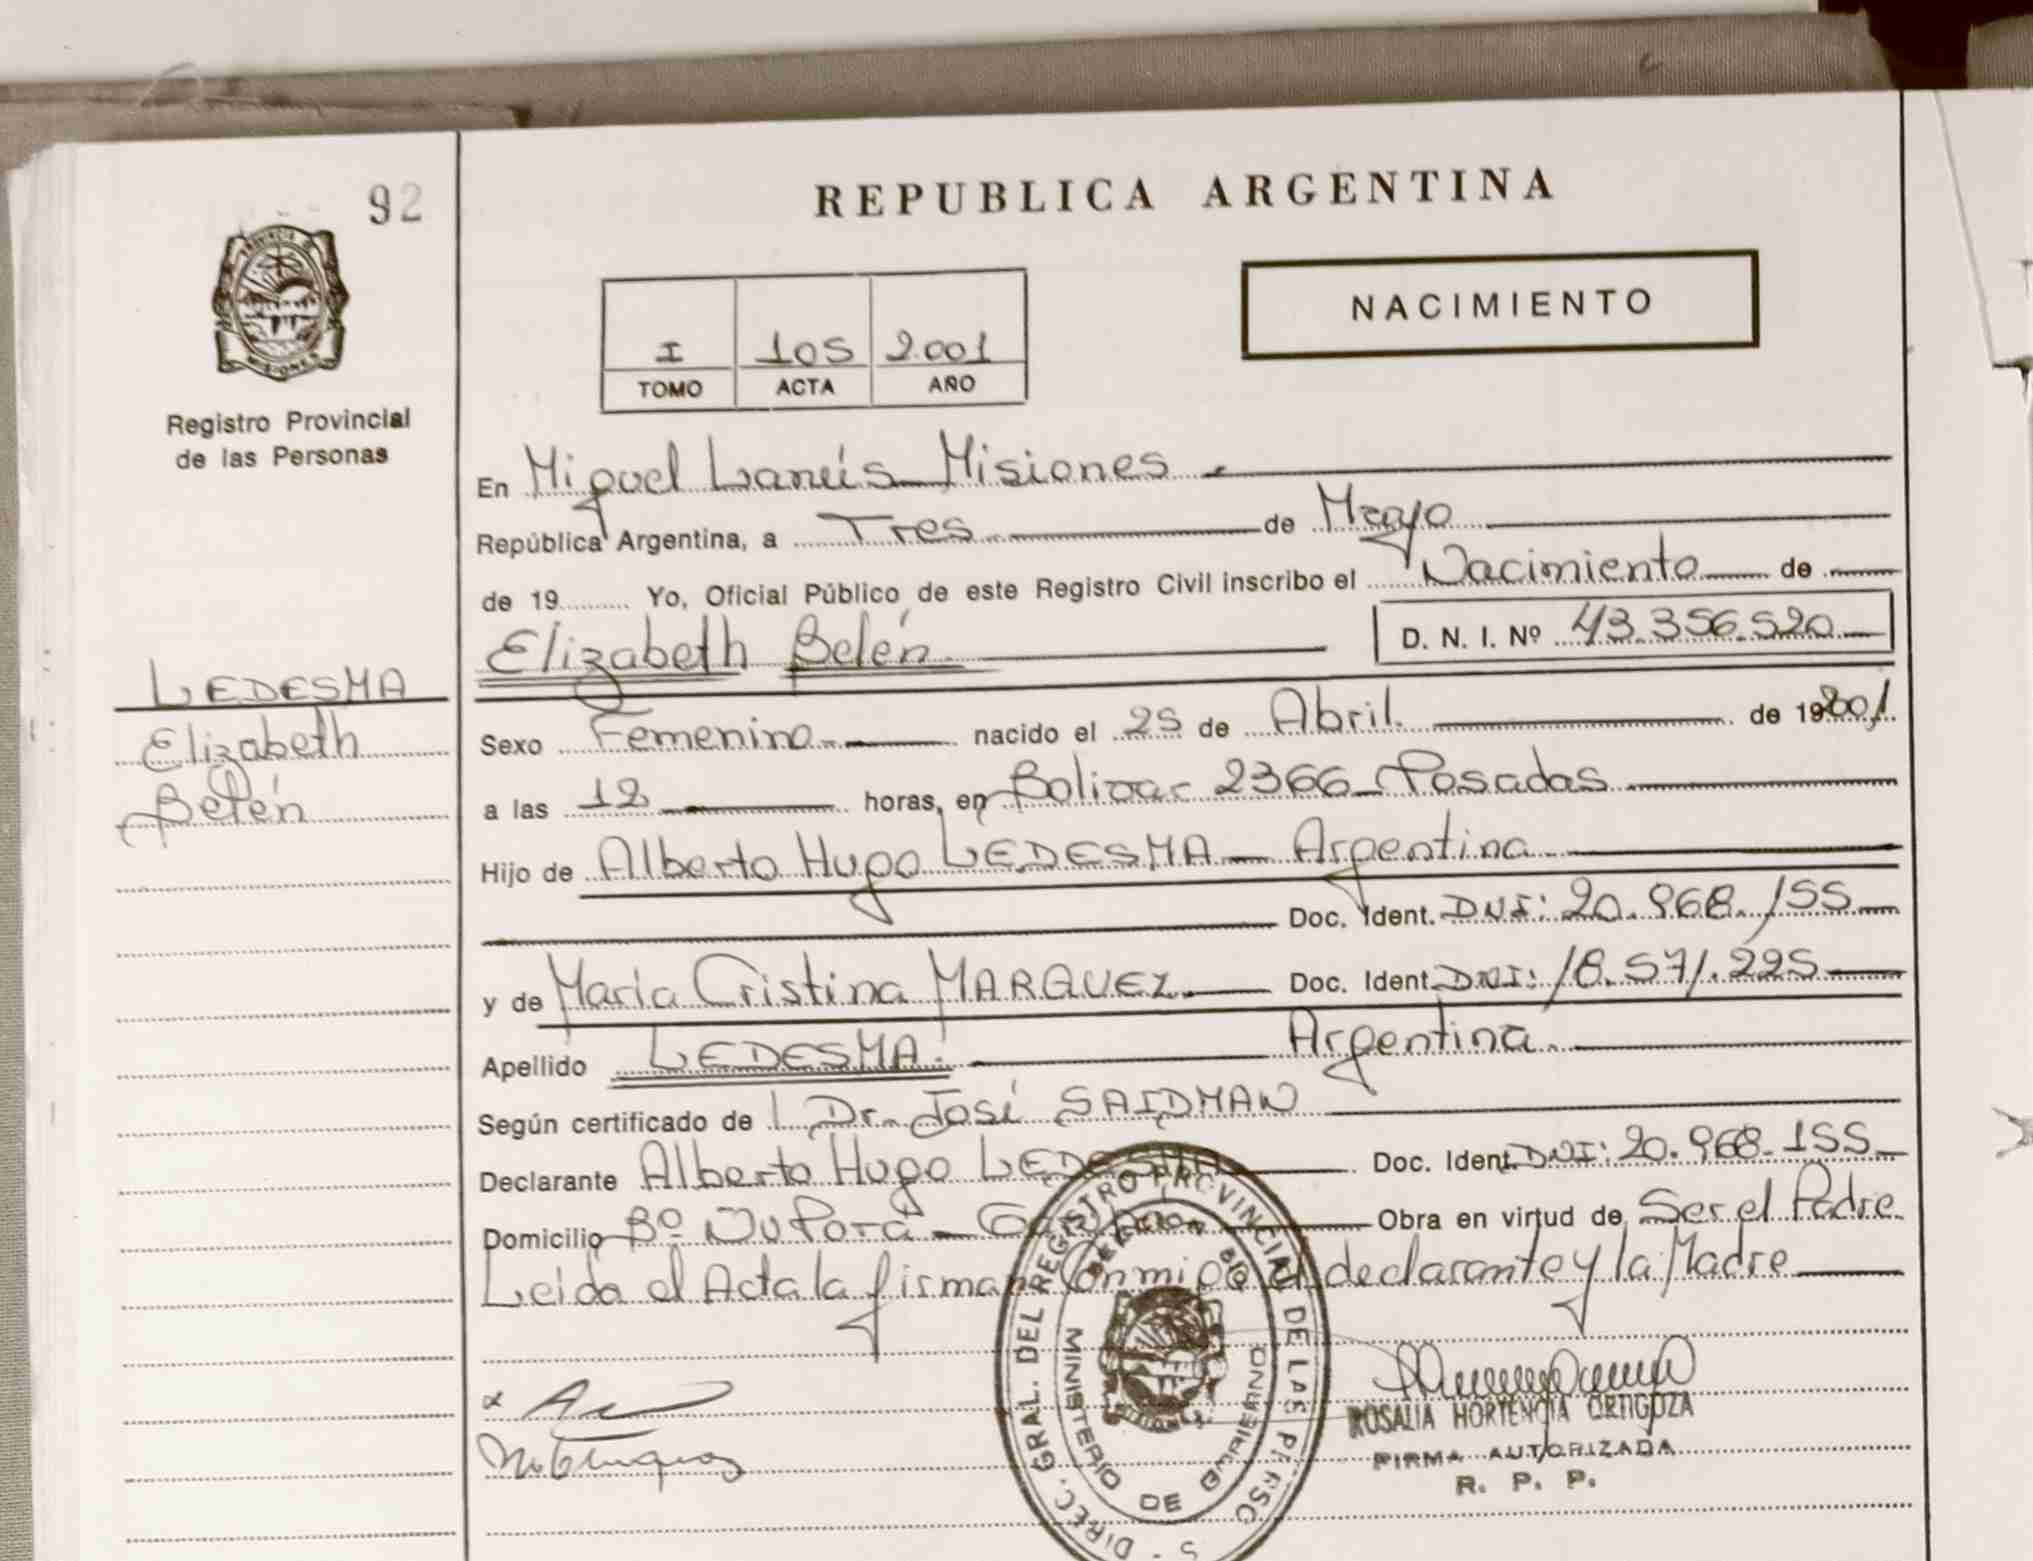 92
REPUBLICA ARGENTINA
NACIMIENTO
I 105 2.001
TOMO ACTA AÑO
PROVINCIA DE
MISIONES
Registro Provincial
de las Personas
En Miguel Lanús Misiones
República Argentina, a Tres de Mayo
de 19 Yo, Oficial Público de este Registro Civil inscribo el Nacimiento de
Elizabeth Belén D. N. I. Nº 43.356.520
LEDESMA
Elizabeth
Belén
Sexo Femenino nacido el 25 de Abril de 192001
a las 12 horas, en Bolivar 2366 Posadas
Hijo de Alberto Hugo LEDESMA Argentina
Doc. Ident. DNI: 20.968.155
y de María Cristina MARQUEZ Doc. Ident. DNI: 18.571.225
Apellido LEDESMA. Argentina
Según certificado de Dr. José SAIDMAN
Declarante Alberto Hugo LEDESMA Doc. Ident. DNI: 20.968.155
Domicilio Bº Ñu Porá Obra en virtud de Ser el Padre
Leida el Acta la firman Conmigo el declarante y la Madre
DIREC. GRAL. DEL REGISTRO PROVINCIAL DE LAS PERSO
MINISTERIO DE GOBIERNO
MISIONES
ROSALIA HORTENCIA ORTIGOZA
FIRMA AUTORIZADA
R. P. P.